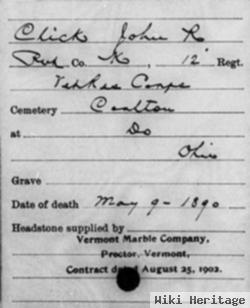 Click John R
Pvt Co. K, 12 Regt.
Vet Res Corps
Cemetery Coalton
at Do
Ohio
Grave
Date of death May 9 - 1890
Headstone supplied by
Vermont Marble Company,
Proctor, Vermont,
Contract dated August 25, 1902.
Wiki Heritage